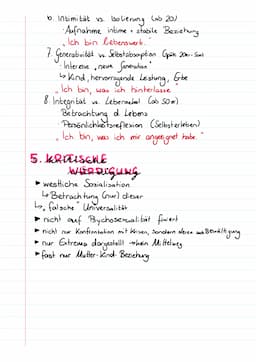 6. Intimität vs. Isolierung (ab 20J
· Aufnahme intime + stabile Beziehung
„Ich bin liebenswert."
7. Generativität vs. Selbstabsorption (spät. 20er-50er)
· Interesse „neue Generation"
↳ Kind, hervorragende Leistung, Erbe
„Ich bin, was ich hinterlasse"
8. Integrität vs. Lebensekel (ab 50er)
· Betrachtung d. Lebens
· Persönlichkeitsreflexion (Selbsterleben)
„Ich bin, was ich mir angeeignet habe."
5. KRITISCHE
WÜRDIGUNG
▸ westliche Sozialisation
↳ Betrachtung (nur) dieser
↳ „falsche" Universalität
▸ nicht auf Psychosexualität fixiert
▸ nicht nur Konfrontation mit Krisen, sondern eben auch Bewältigung
▸ nur Extrema dargestellt → kein Mittelweg
▸ fast nur Mutter-Kind-Beziehung